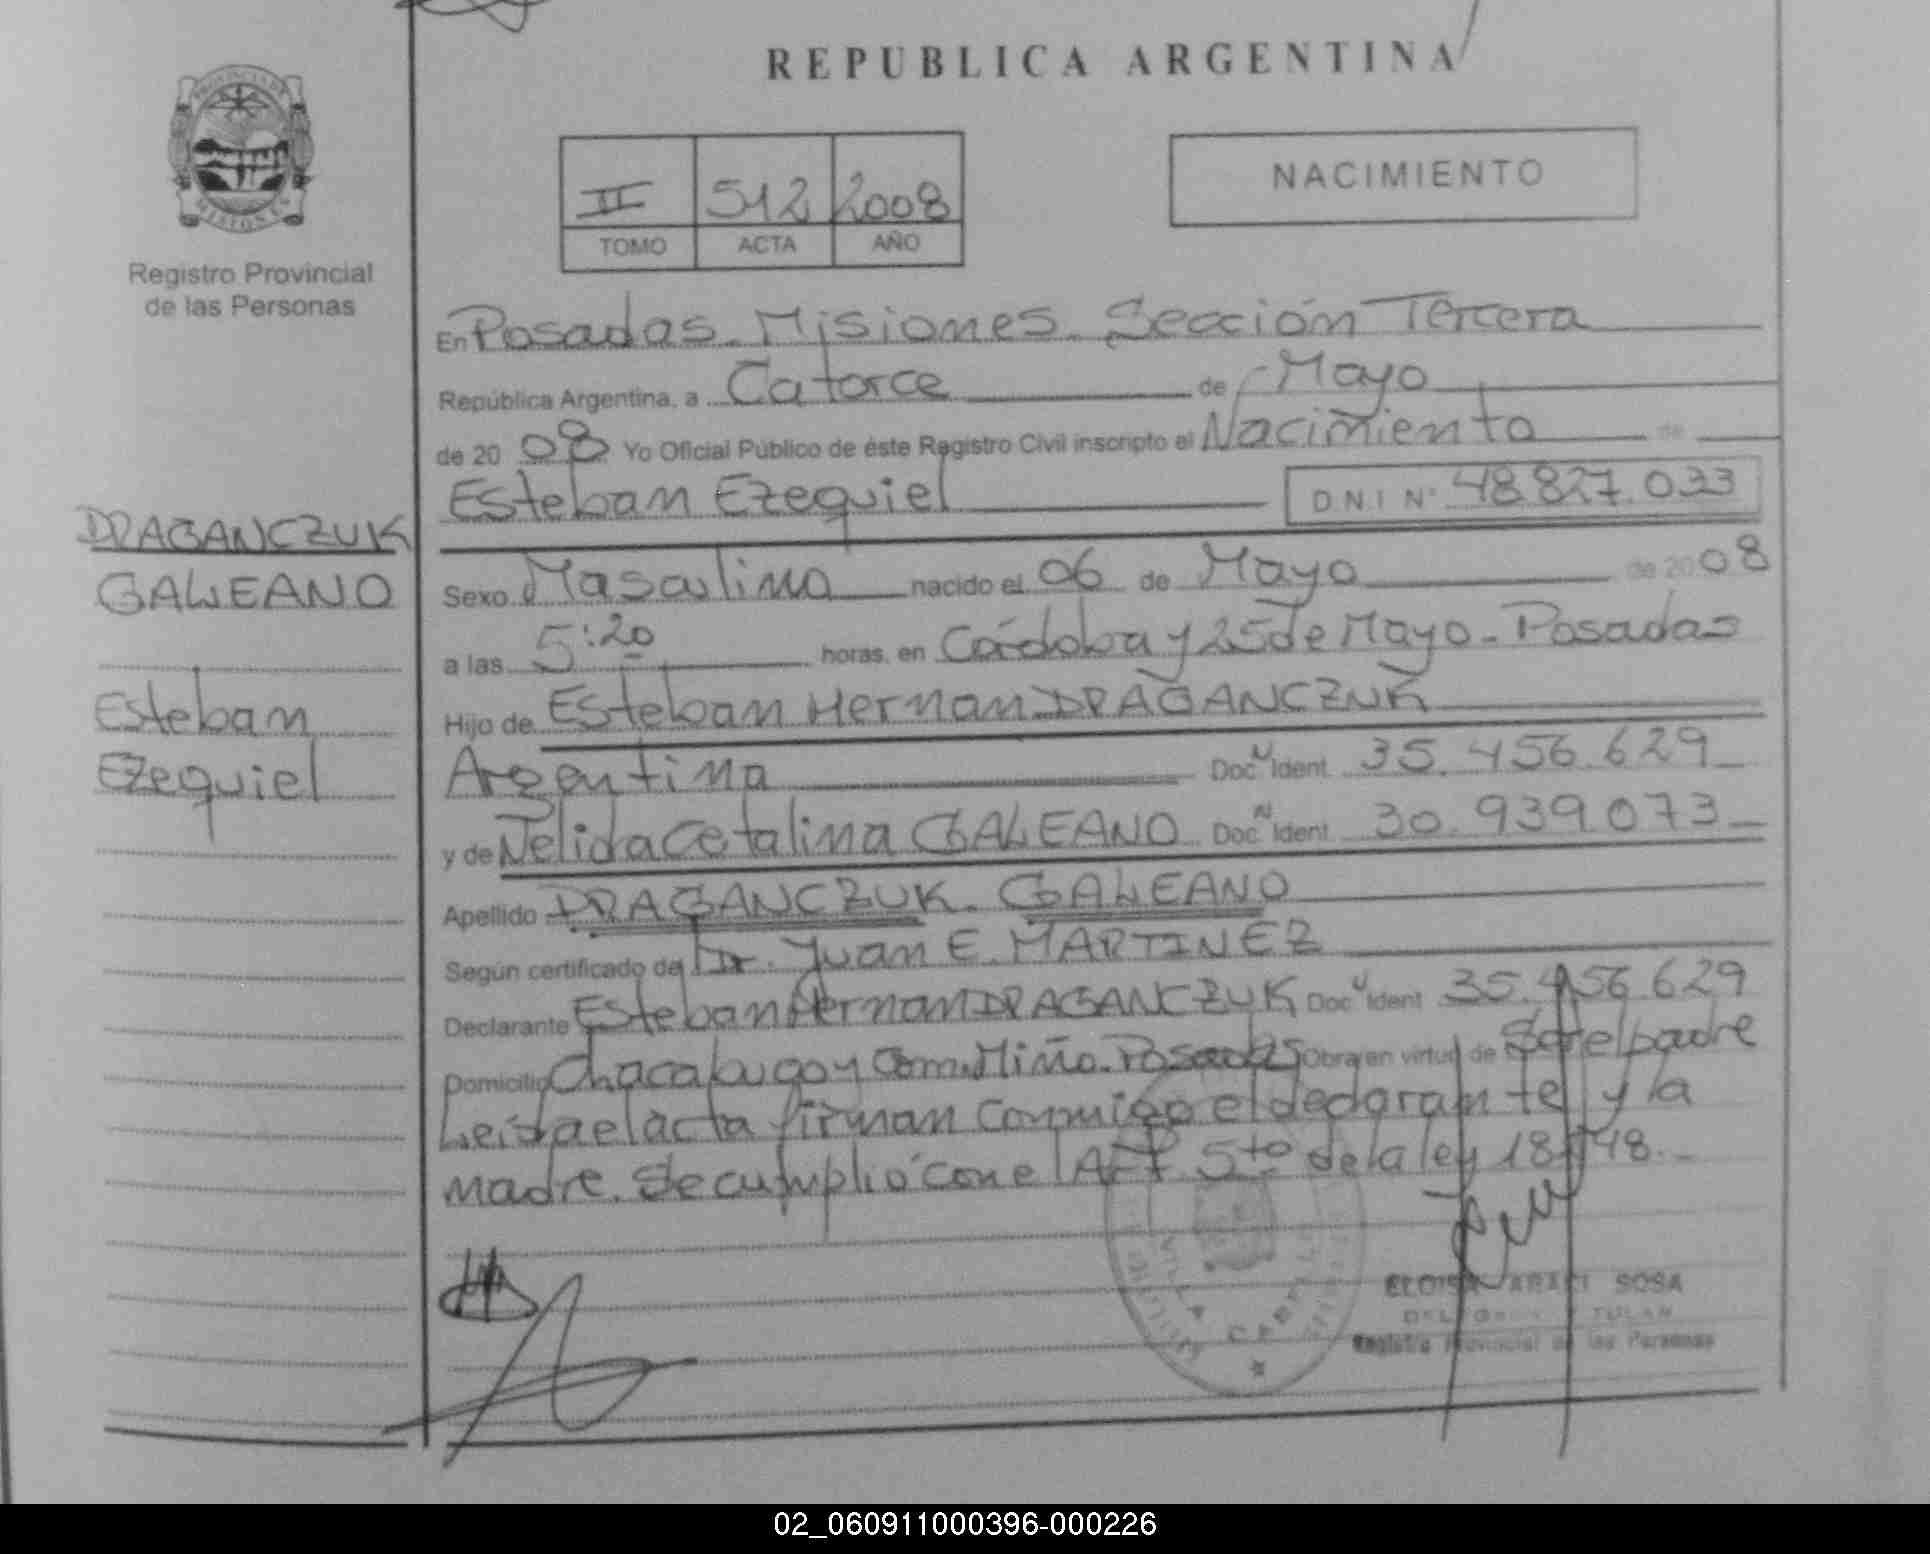 REPUBLICA ARGENTINA
PROVINCIA DE
MISIONES
Registro Provincial
de las Personas
II 512 2008
TOMO ACTA AÑO
NACIMIENTO
En Posadas. Misiones. Sección Tercera
República Argentina, a Catorce de Mayo
de 2008 Yo Oficial Público de éste Registro Civil inscripto el Nacimiento de
Esteban Ezequiel D.N.I Nº 48.827.033
DRAGANCZUK
GALEANO
Esteban
Ezequiel
Sexo Masculino nacido el 06 de Mayo de 2008
a las 5:20 horas, en Córdoba y 25 de Mayo - Posadas
Hijo de Esteban Hernan DRAGANCZUK
Argentina Doc. Ident. 35.456.629
y de Nelida Cetalina GALEANO Doc. Ident. 30.939.073
Apellido DRAGANCZUK. GALEANO
Según certificado de Dr. Juan E. MARTINEZ
Declarante Esteban Hernan DRAGANCZUK Doc. Ident. 35.456.629
Domicilio Chacabuco y Com. Miño. Posadas Obra en virtud de Ser el padre
Leída el acta firman conmigo el declarante y la
madre. Se cumplió con el Art. 5to de la ley 18.248.
VILLA CABELLO
ELOISA ARACI SOSA
Registro Provincial de las Personas
02_060911000396-000226